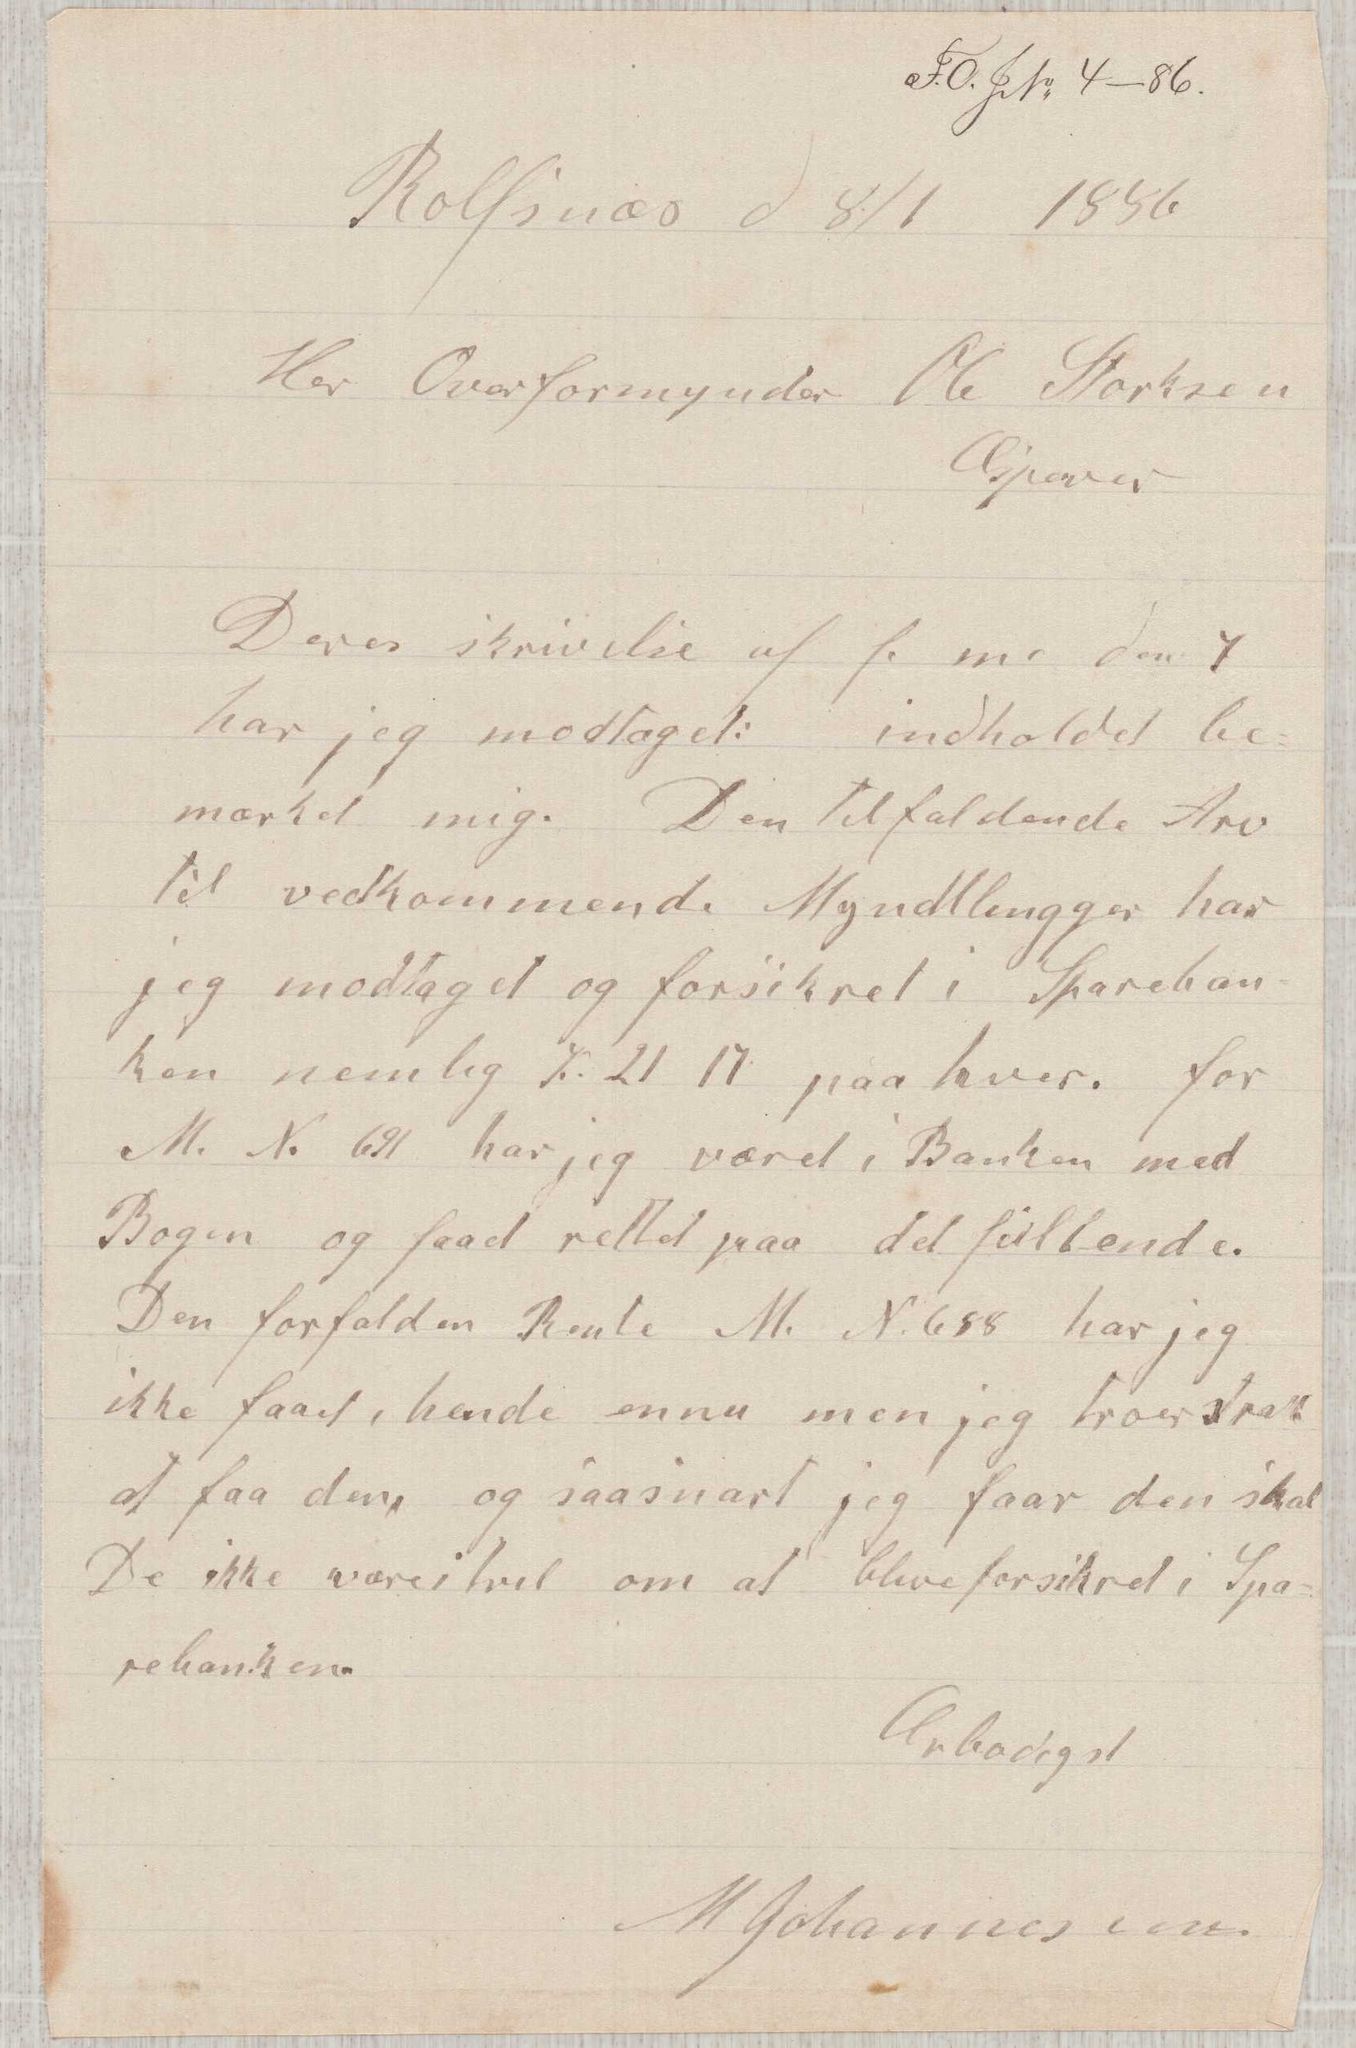 F.O. J No 4-86.
Rolfsnæs d 8/1 1886
Her Overformynder Ole Storksen
Espevær
Deres skrivelse af f. m. den 7
har jeg modtaget: indholdet be=
mærket mig. Den tilfaldende Arv
til vedkommende Myndllengger har
jeg modtaget og forsikret i Spareban-
ken nemlig K. 21 17 paa hver. for
M. N. 691 har jeg væred i Banken med
Bogen og faaet rettet paa det feillende.
Den forfalden Rente M. N. 688 har jeg
ikke faaet, hende ennu men jeg troer strax
at faa den, og saasnart jeg faar den skal
De ikke være i tvil om at blive forsikret i Spa=
rebanken.
Ærbødigst
M Johannessen.